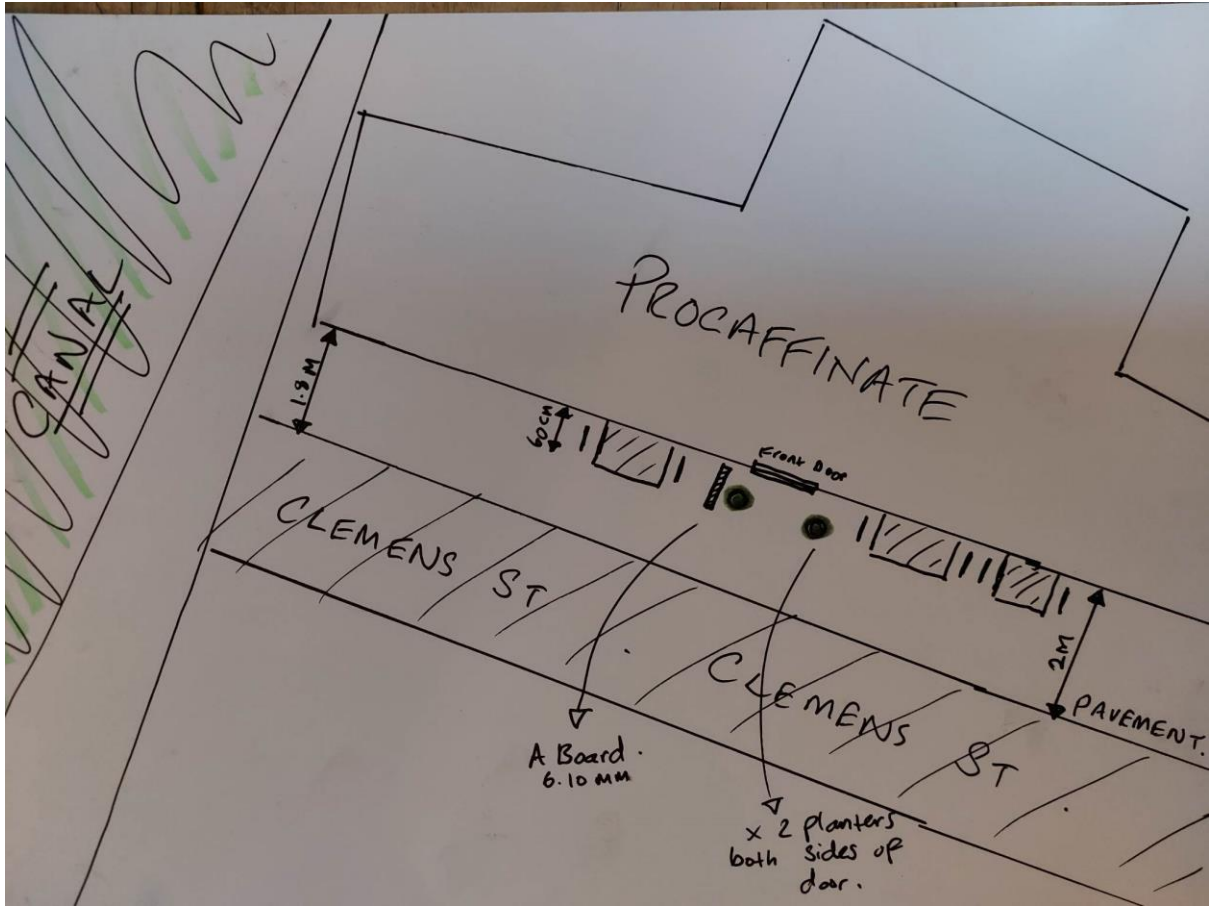 CANAL
PROCAFFINATE
1.8 M
60CM
Front Door
CLEMENS ST
CLEMENS ST
2M
PAVEMENT.
A Board.
6.10 MM
x 2 planters
both sides of
door.